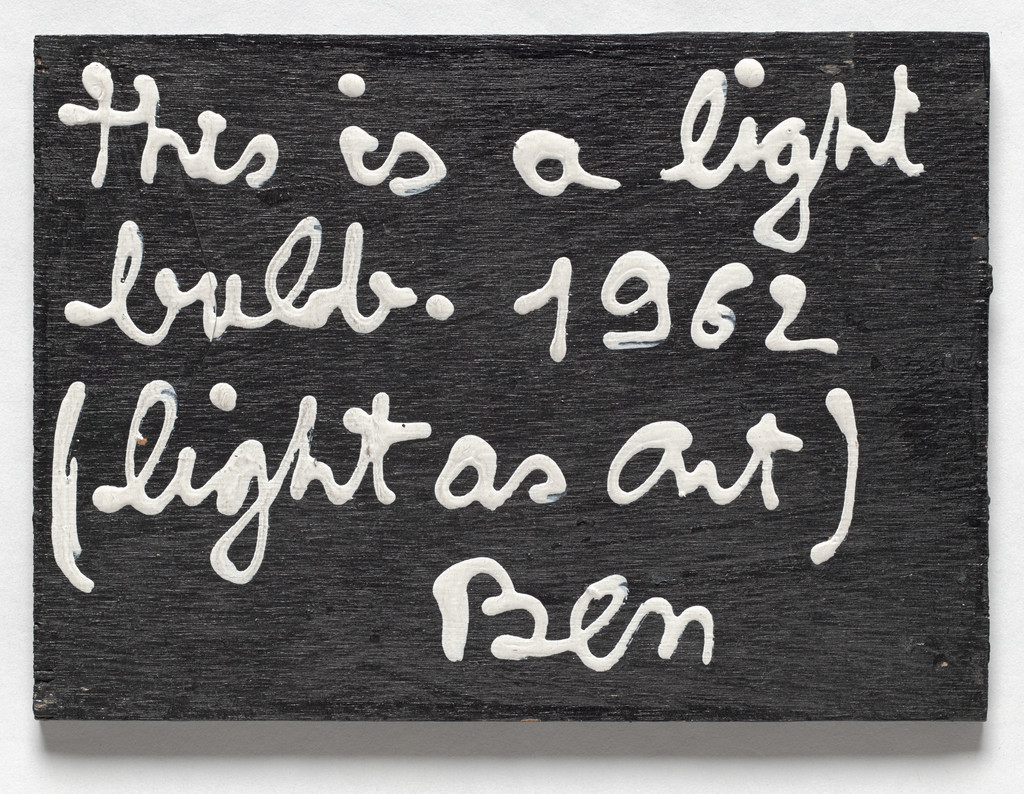 this is a light
bulb. 1962
(light as art)
Ben